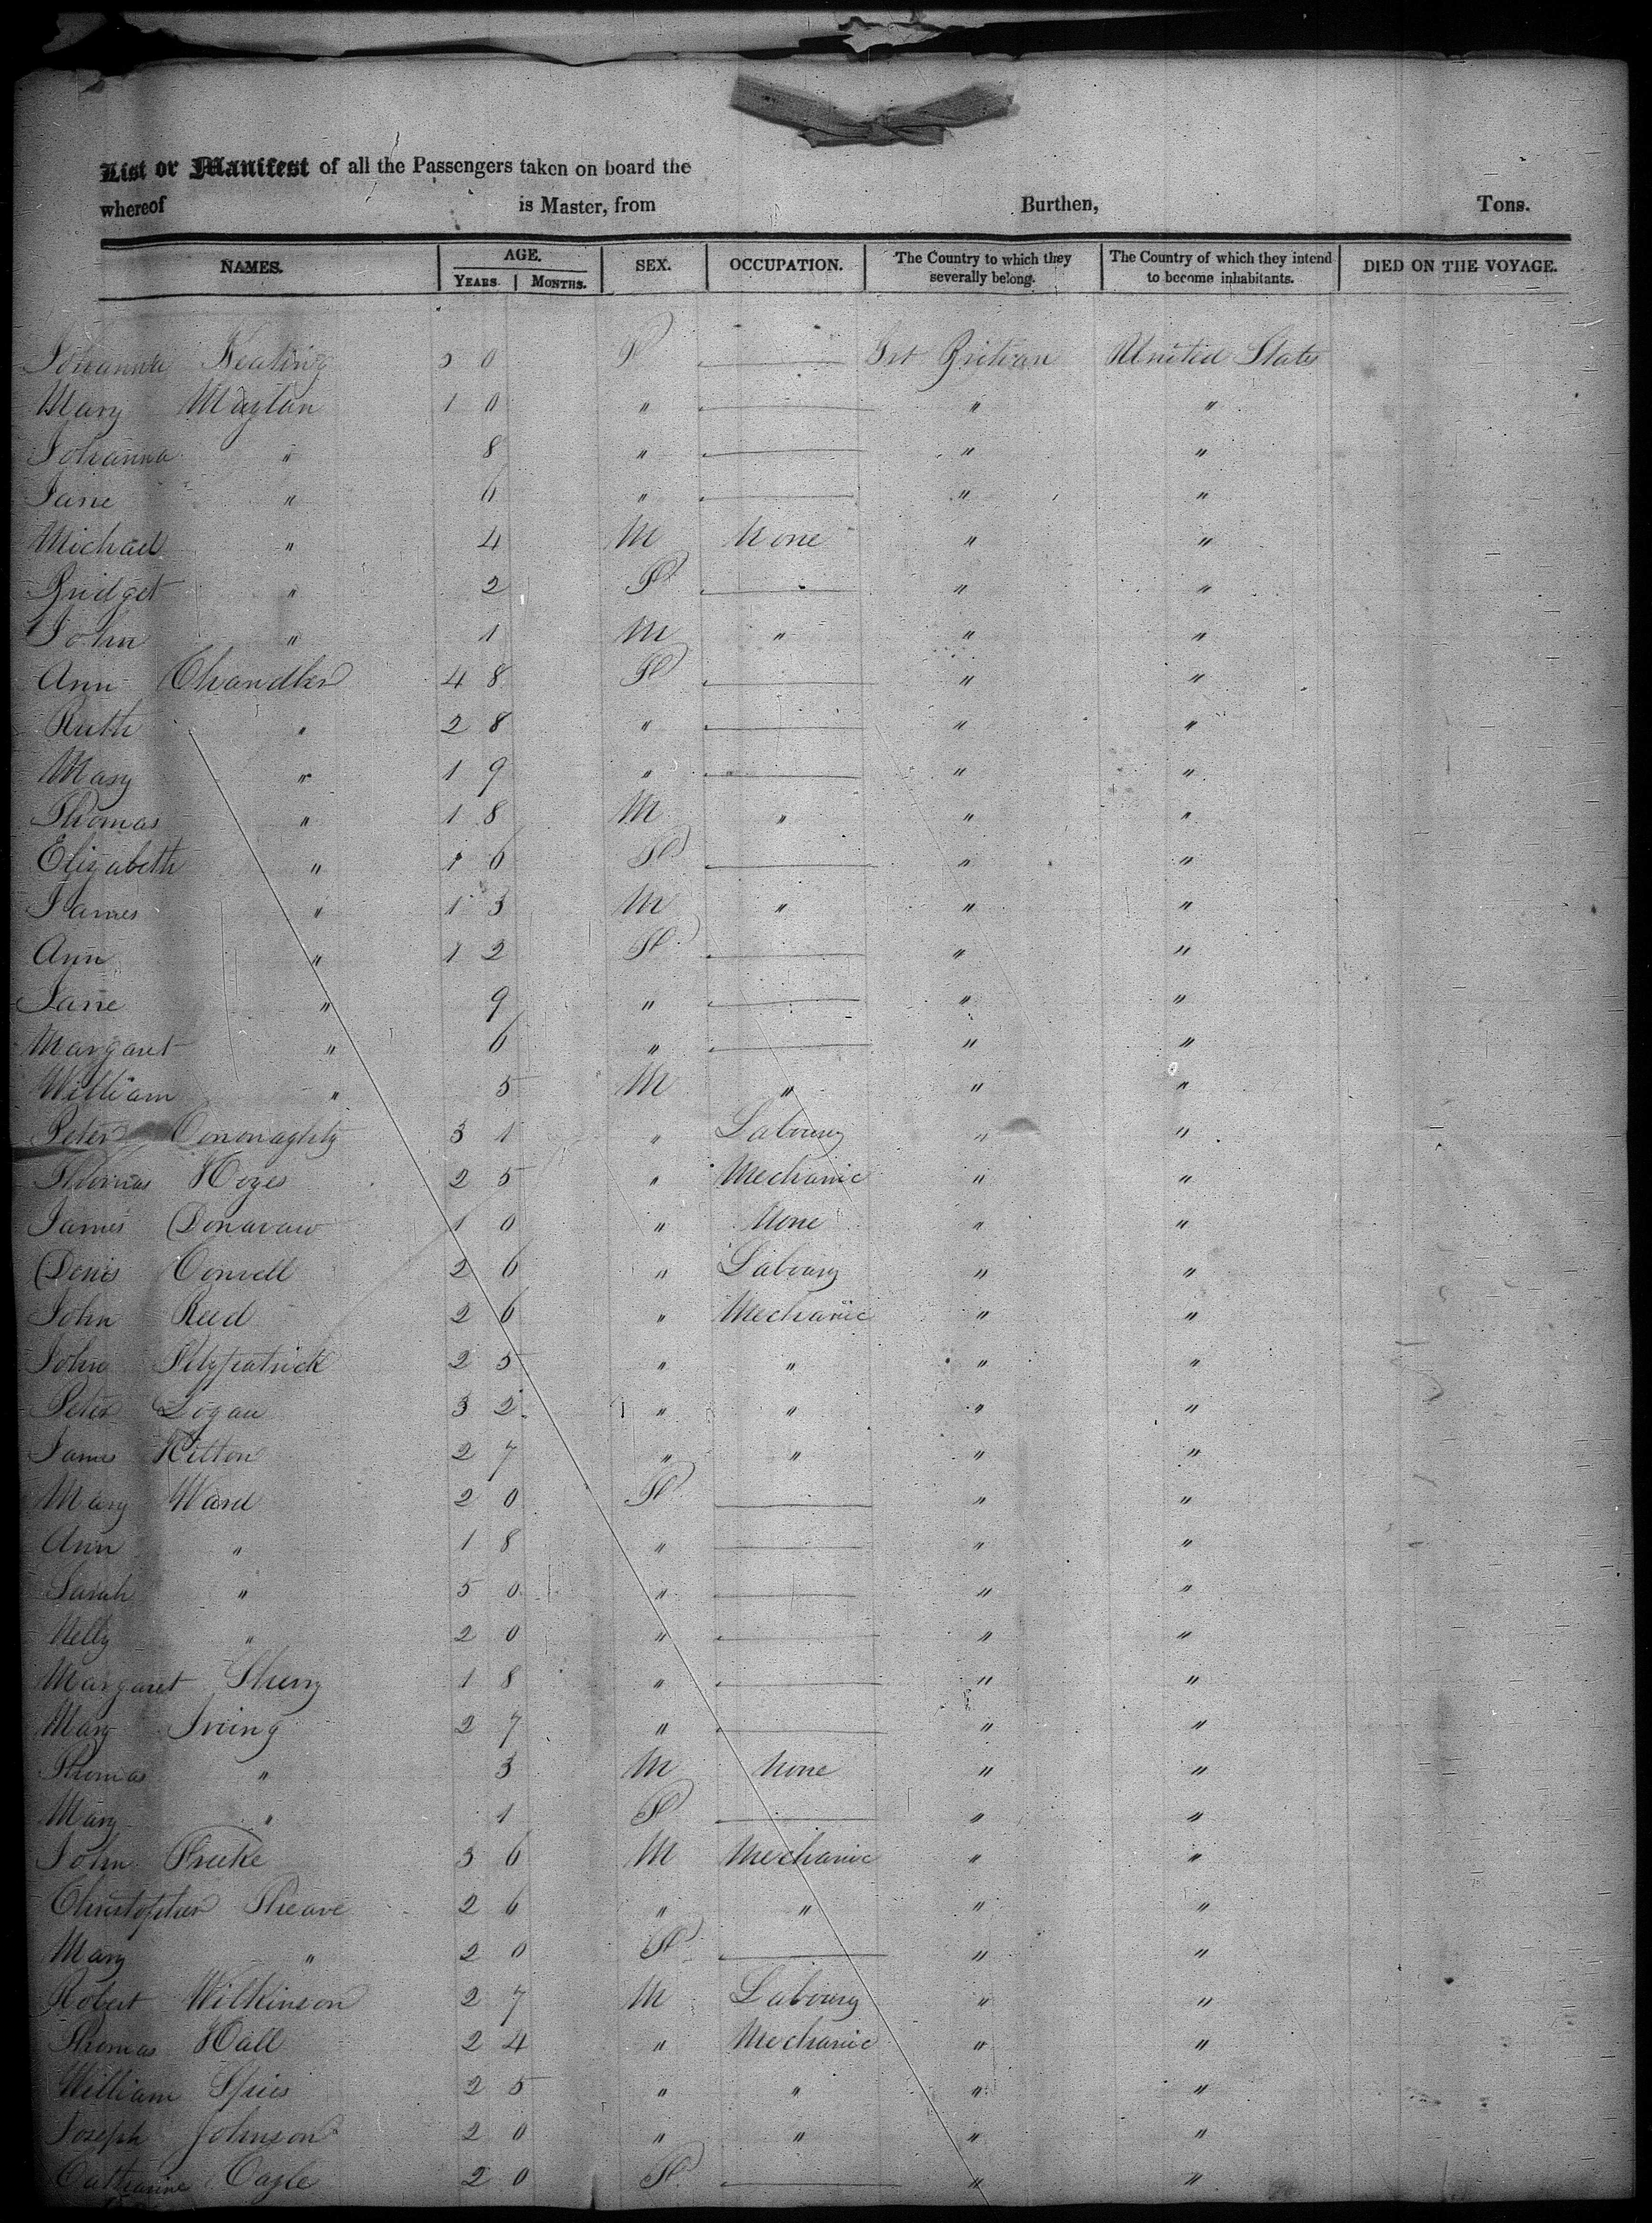 List or Manifest of all the Passengers taken on board the
whereof is Master, from Burthen, Tons.
NAMES. AGE. SEX. OCCUPATION. The Country to which they severally belong. The Country of which they intend to become inhabitants. DIED ON THE VOYAGE.
YEARS. MONTHS.
Johanna Keating 30 F — Grt Britian United States
Mary Maylan 10 " — " "
Johanna " 8 " — " "
Jane " 6 " — " "
Michael " 4 M None " "
Bridget " 2 F — " "
John " 1 M " " "
Ann Chandler 48 F — " "
Ruth " 28 " — " "
Mary " 19 " — " "
Thomas " 18 M " " "
Elizabeth " 16 F — " "
James " 13 M " " "
Ann " 12 F — " "
Jane " 9 " — " "
Margaret " 6 " — " "
William " 5 M " " "
Peter Cononaghty 31 " Labourg " "
Thomas Hoyes 25 " Mechanic " "
James Donavaw 10 " None " "
Denis Convell 26 " Labourg " "
John Reed 26 " Mechanic " "
John Fitzpatrick 25 " " " "
Peter Logan 32 " " " "
James Hilton 27 " " " "
Mary Ward 20 F — " "
Ann " 18 " — " "
Sarah " 50 " — " "
Nelly " 20 " — " "
Margaret Sherry 18 " — " "
Mary Irving 27 " — " "
Thomas " 3 M None " "
Mary " 1 F — " "
John 36 M Mechanic " "
Christopher Sheave 26 " " " "
Mary " 20 F — " "
Robert Wilkinson 27 M Labourg " "
Thomas Hall 24 " Mechanic " "
William Spies 25 " " " "
Joseph Johnson 20 " " " "
Catharine Cagle 20 F — " "